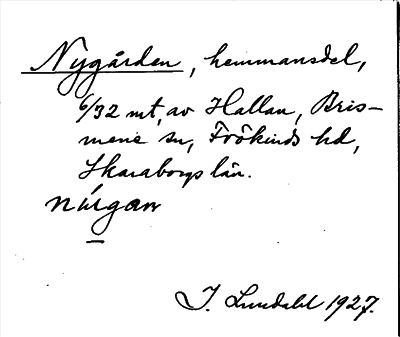 Nygården, hemmansdel,
6/32 mt, av Hallan, Bris-
mene sn, Frökinds hd,
Skaraborgs län.
I. Lundahl 1927.